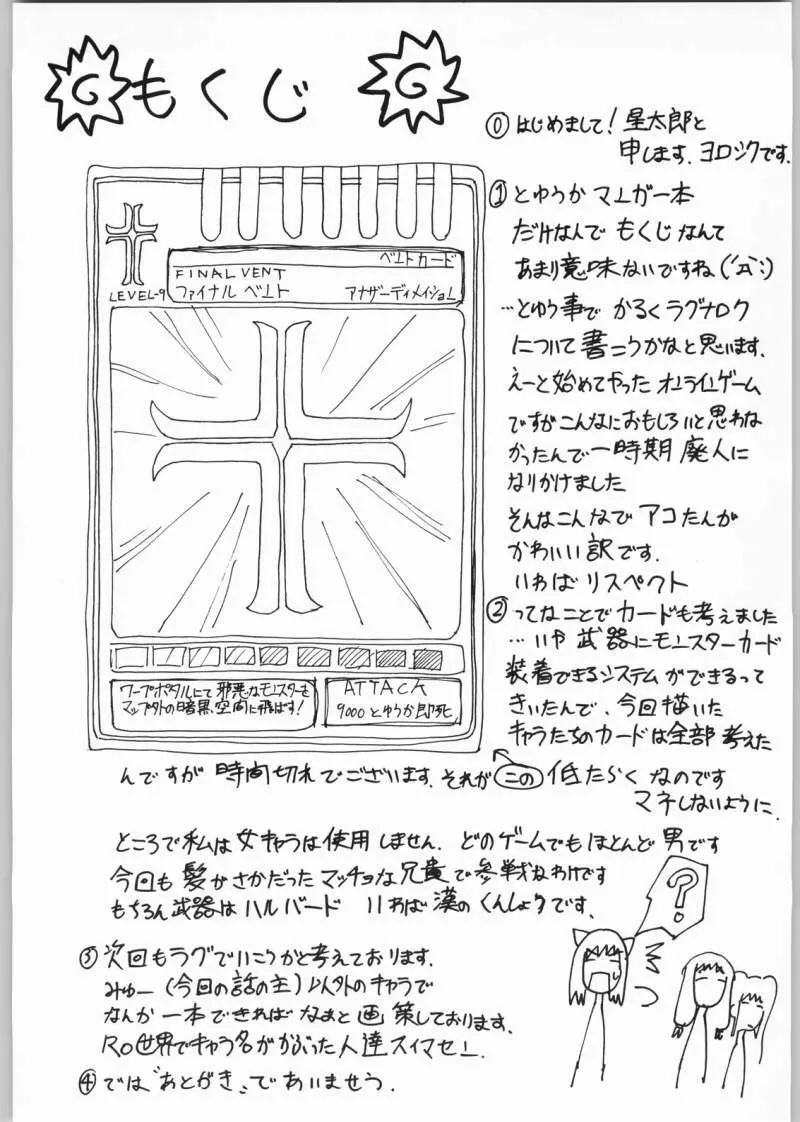 G もくじ G
⓪ はじめまして！星太郎と
申します、ヨロシクです、
① とゆうかマンガ一本
だけなんで もくじ なんて
あまり意味ないですね(´д`;)
…とゆう事で かるくラグナロク
について書こうかなと思います、
えーと始めてやったオンラインゲーム
ですがこんなにおもしろいと思わな
かったんで一時期 廃人に
なりかけました
そんなこんなで アコたんが
かわいい訳です、
いわば リスペクト
② ってなことでカードも考えました
…いや 武器にモンスターカード
装着できるシステムができるって
きいたんで、今回描いた
キャラたちのカードは全部 考えた
んですが 時間切れでございます、それが この 低たらく なのです
マネしないように、
LEVEL-9
ベントカード
FINAL VENT
ファイナル ベント アナザーディメイション
ワープポタルにて邪悪なモンスターを
マップ外の暗黒空間に飛ばす！
ATTACK
9000とゆうか即死
ところで私は女キャラは使用しません、どのゲームでもほとんど男です
今回も髪がさかだったマッチョな兄貴で参戦なわけです
もちろん武器はハルバード いわば漢のくんしょうです、
③ 次回もラグでいこうかと考えております、
みゅー（今回の話の主）以外のキャラで
なんか一本できればなぁと画策しております、
RO世界でキャラ名がかぶった人達スイマセン、
④ では"あとがき"であいませう、
？